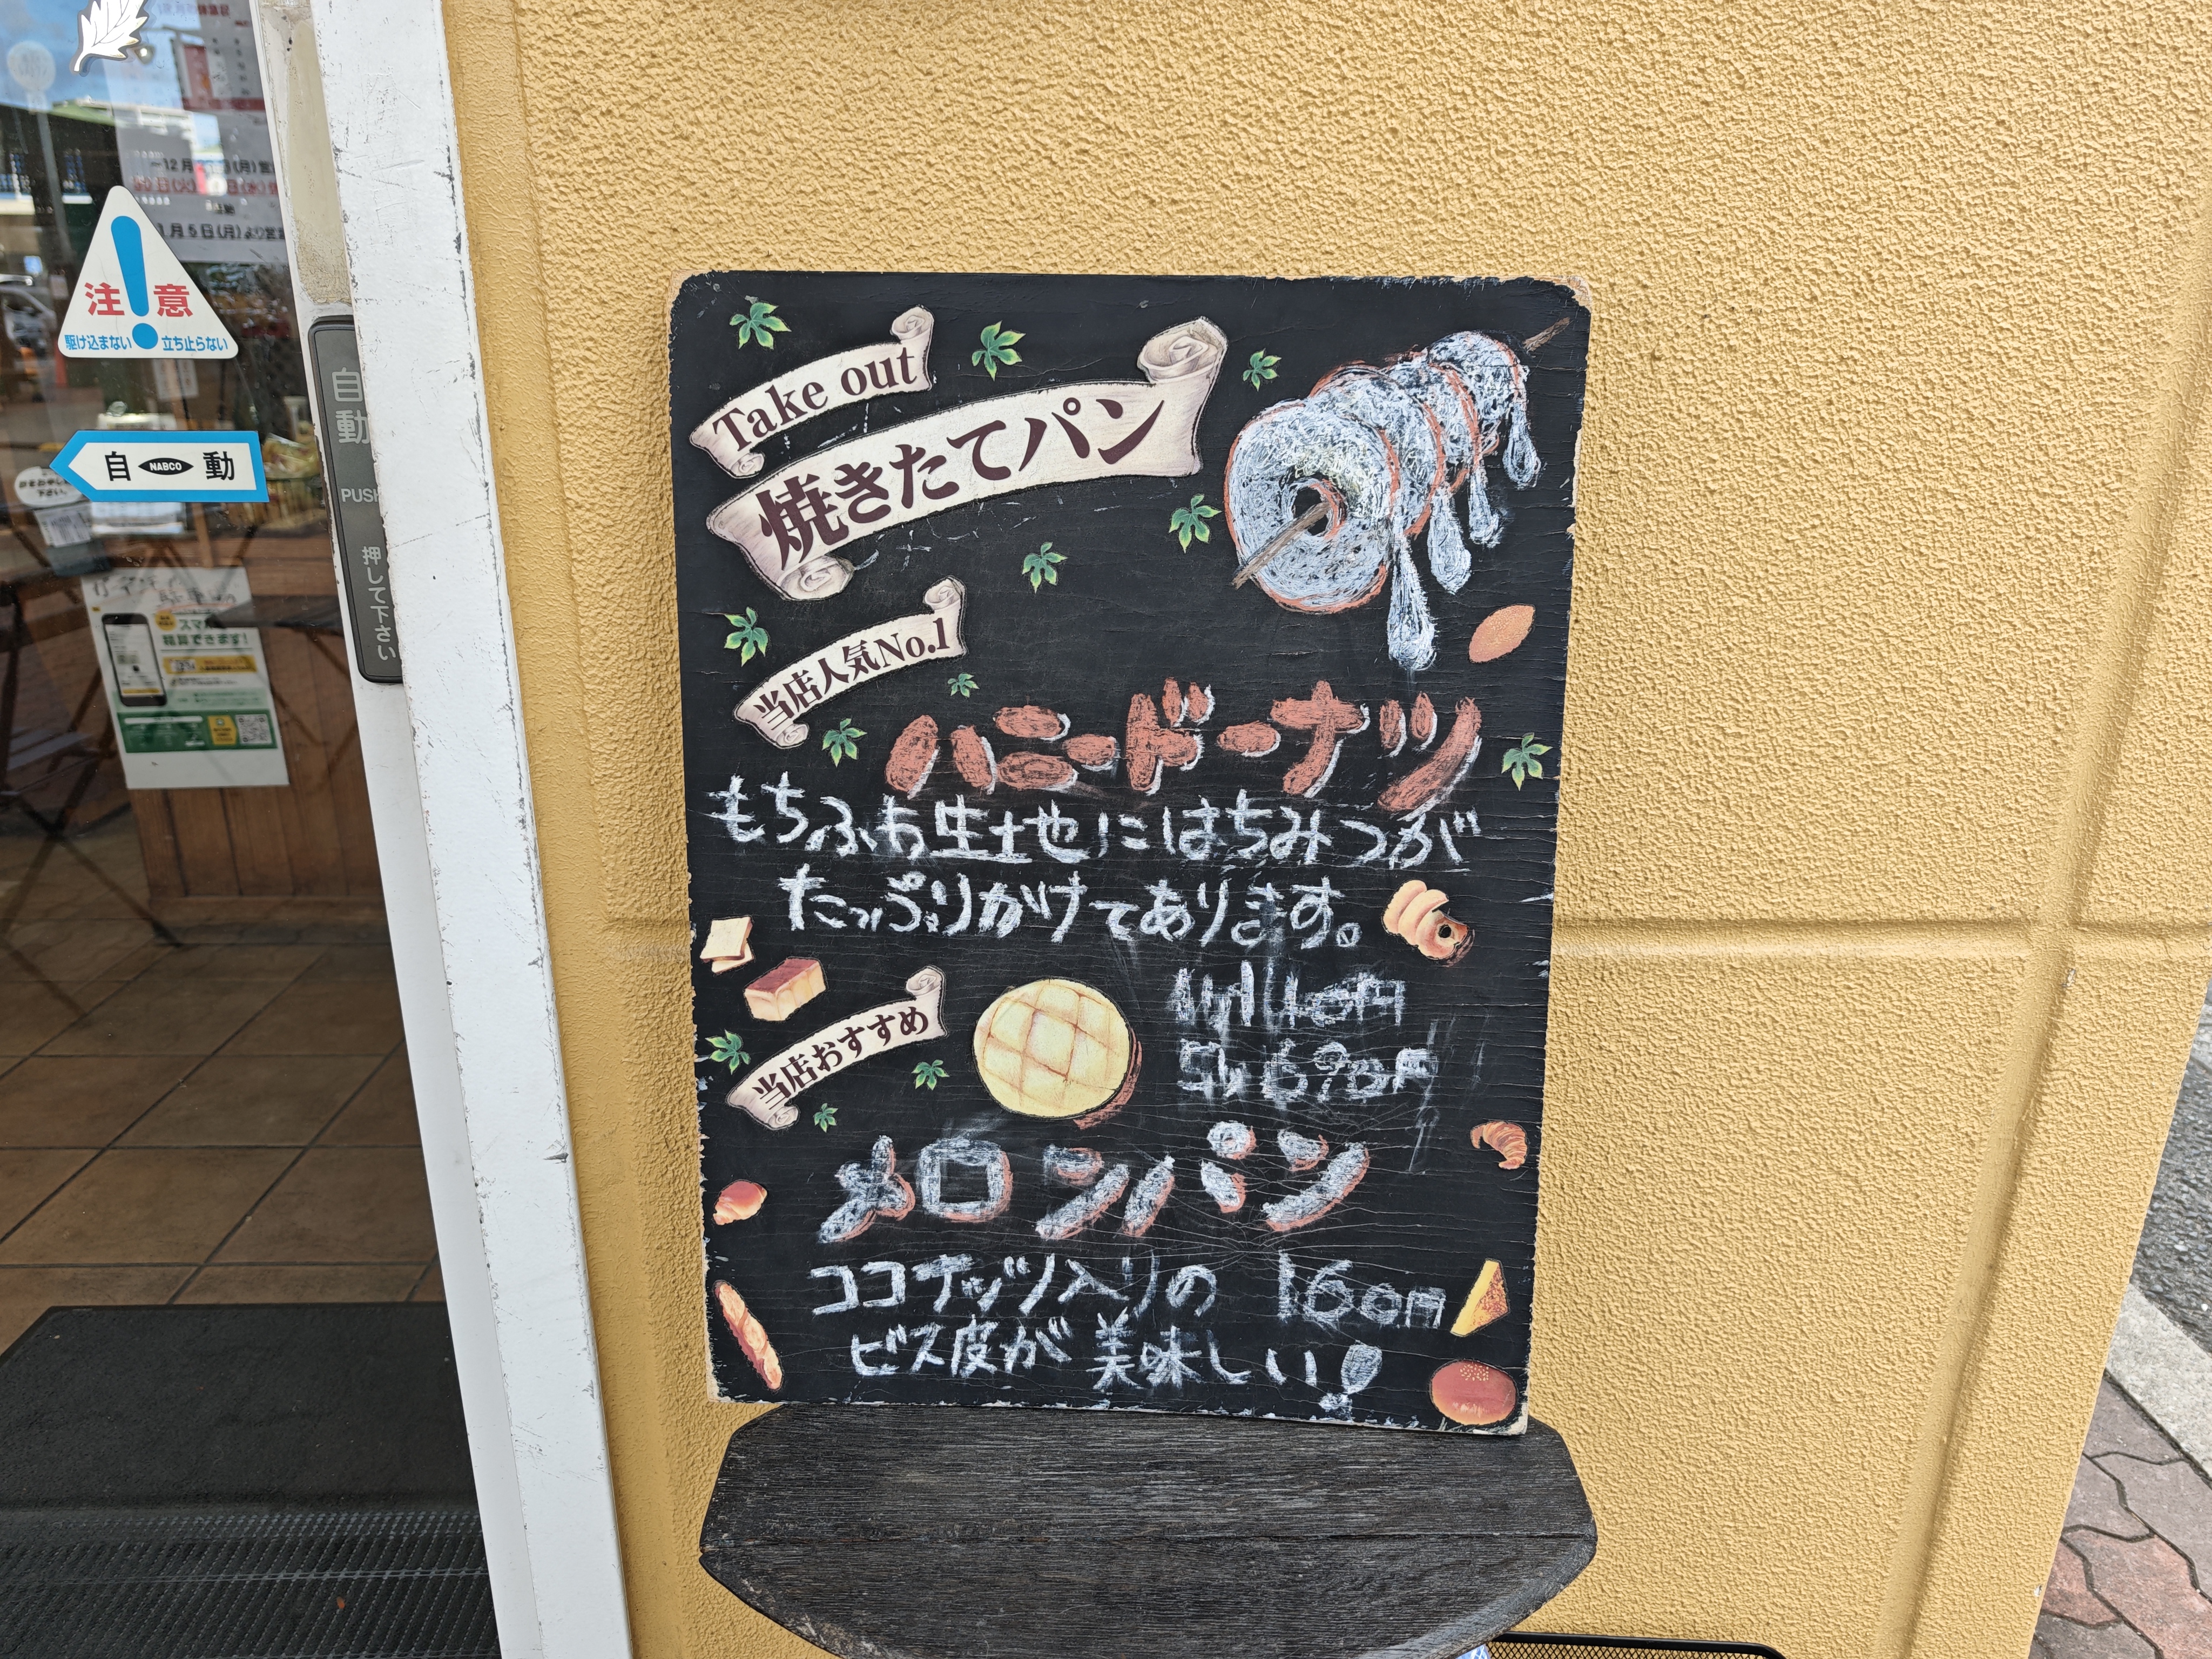 Take out
焼きたてパン
当店人気No.1
ハニードーナツ
もちふわ生地にはちみつが
たっぷりかけてあります。
当店おすすめ
メロンパン
ココナッツ入りの 160円
ビス皮が美味しい!
注意
駆け込まない 立ち止らない
自 NABCO 動
自動
PUSH
押して下さい
1月5日(月)より営